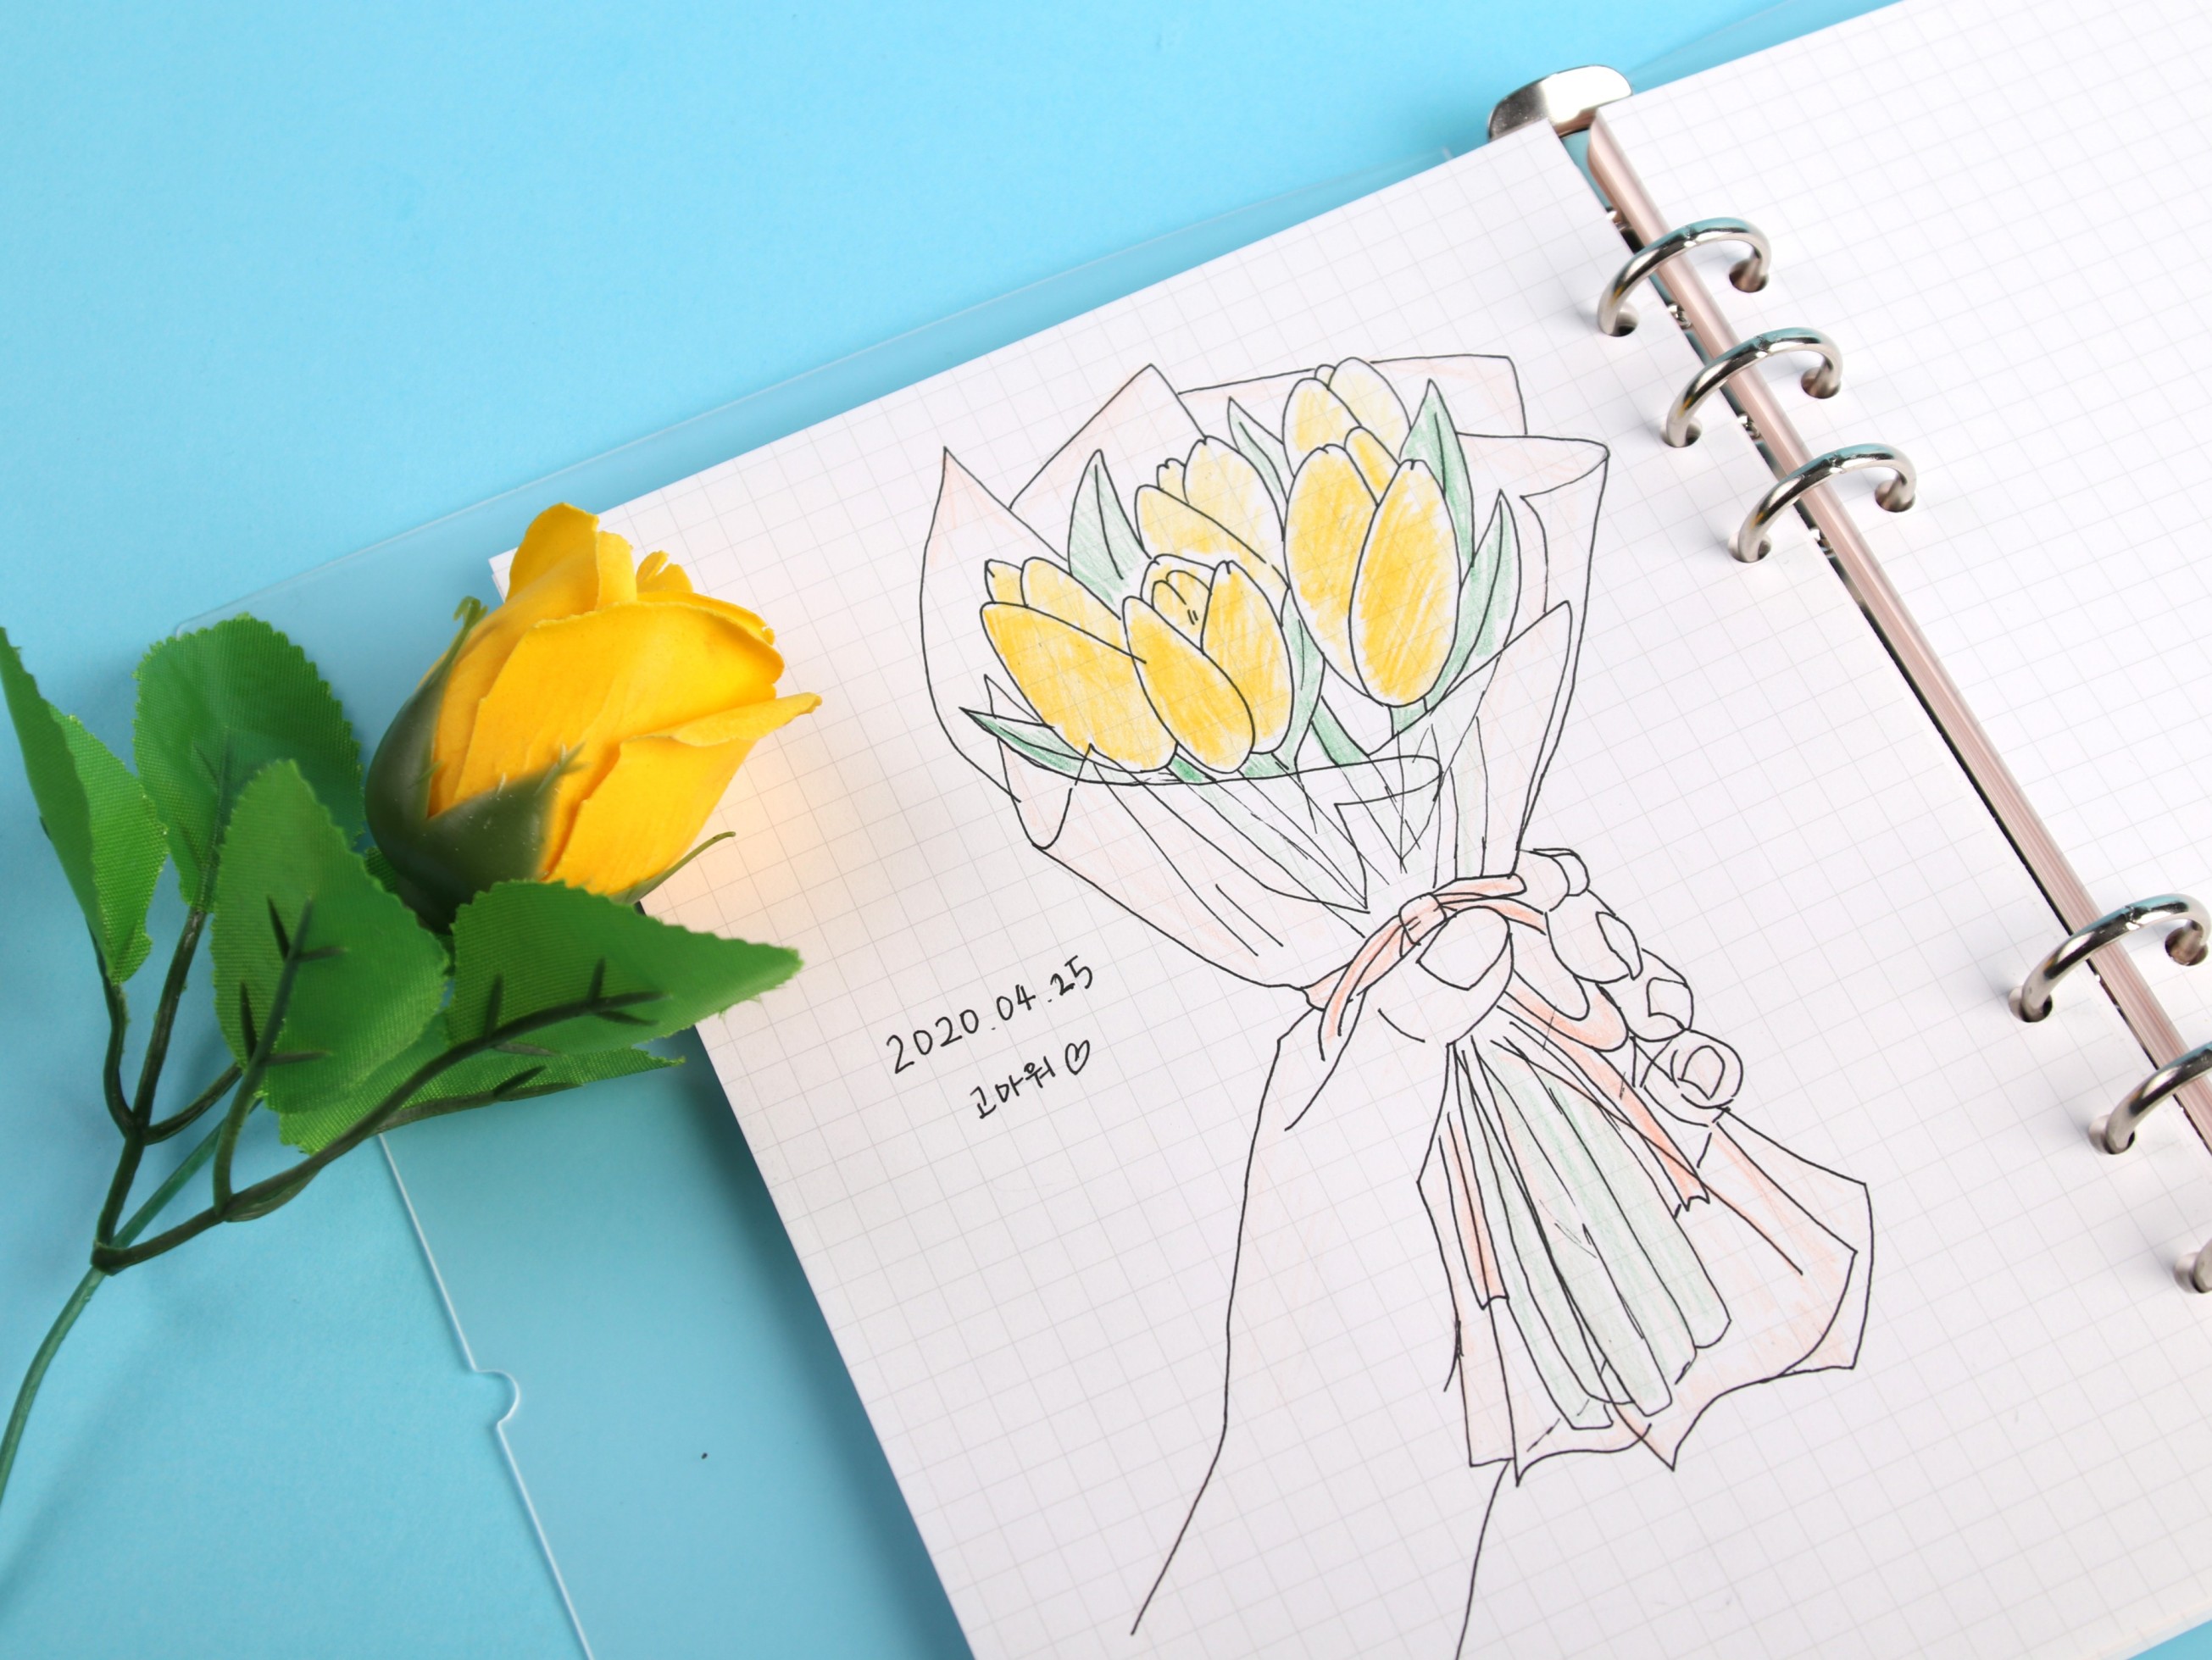 2020.04.25
고마워♡